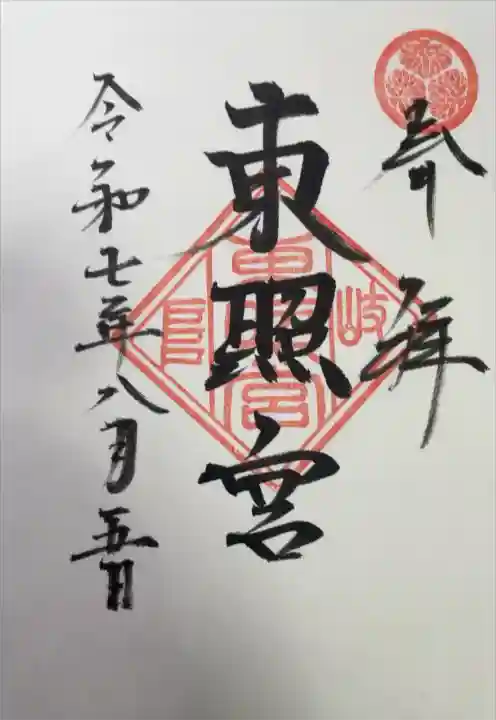 奉拝
東照宮
岐
東照宮
令和七年八月五日